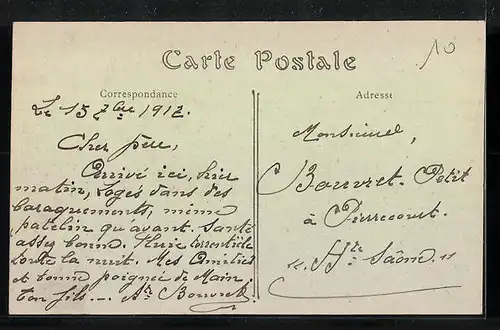 Carte Postale
10
Correspondance
Adresse
Le 15 7bre 1912.
Cher père,
Arrivé ici, hier
matin, Logés dans des
baraquements, même
patelin qu'avant. Santé
assez bonne. Pluie torrentielle
toute la nuit. Mes Amitiés
et bonne poignée de Main
Ton fils... Bouvret
Monsieur,
Bouvret-Petit
à Pierrecourt.
"Hte Saône"